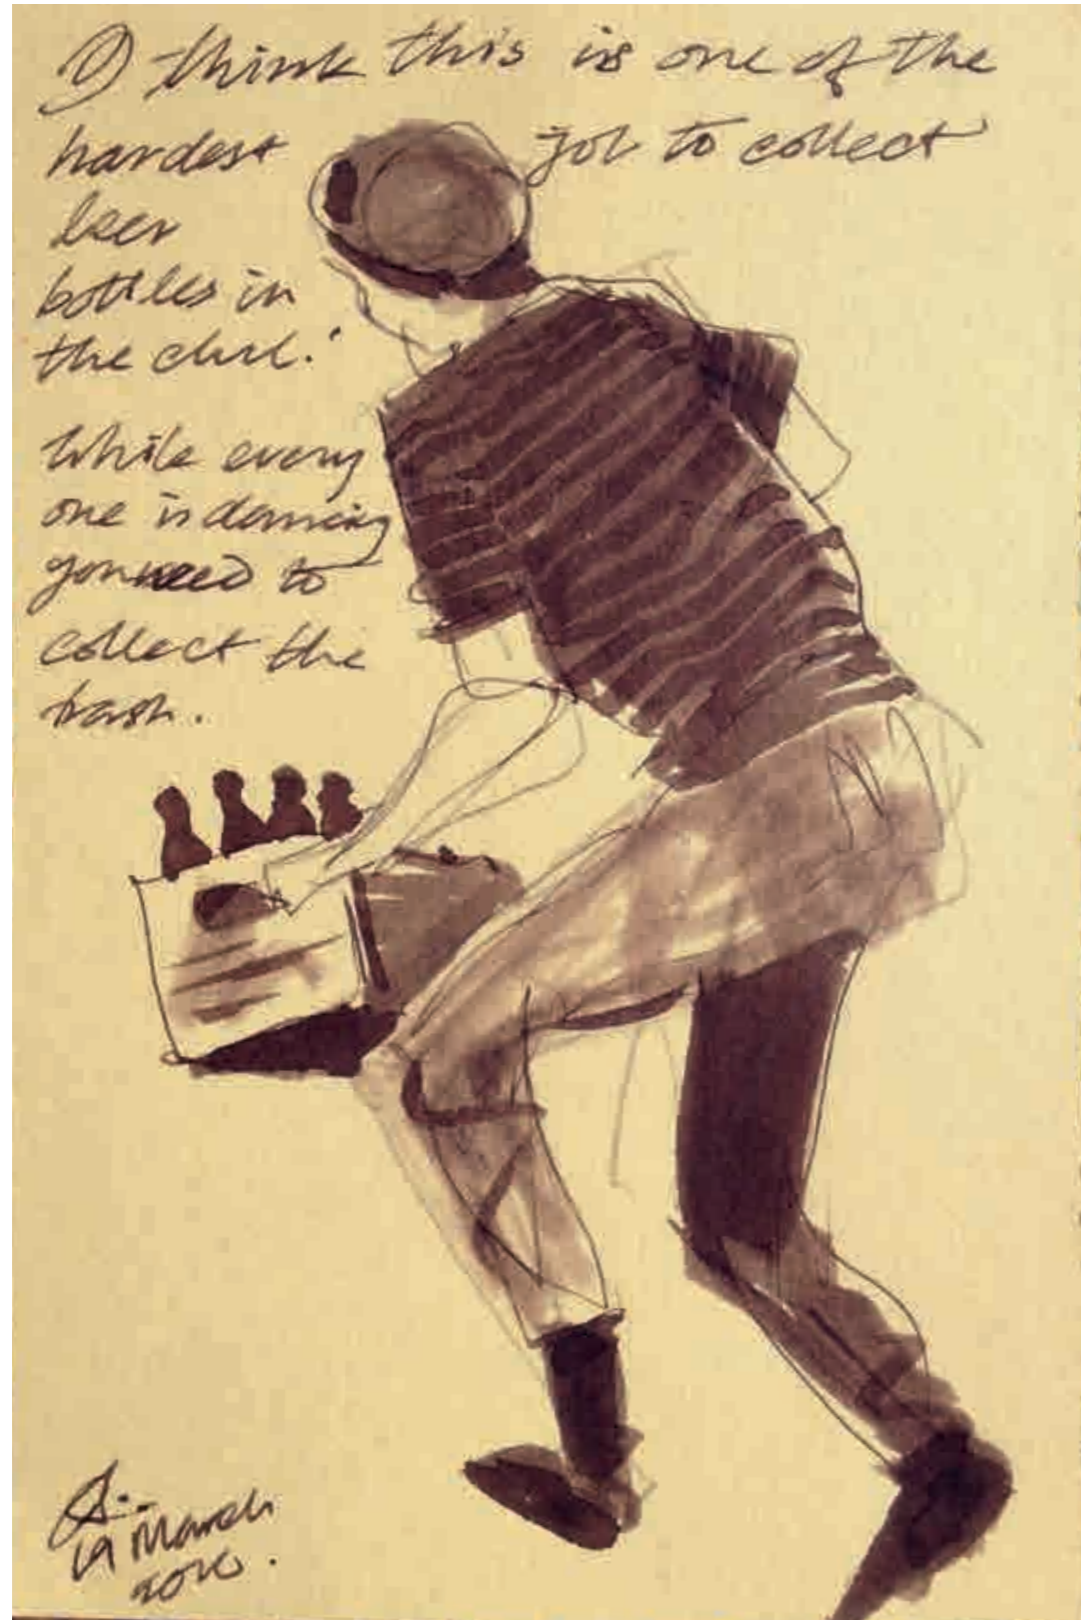 I think this is one of the
hardest job to collect
beer
bottles in
the club.
While every
one is dancing
you need to
collect the
trash.
19 March